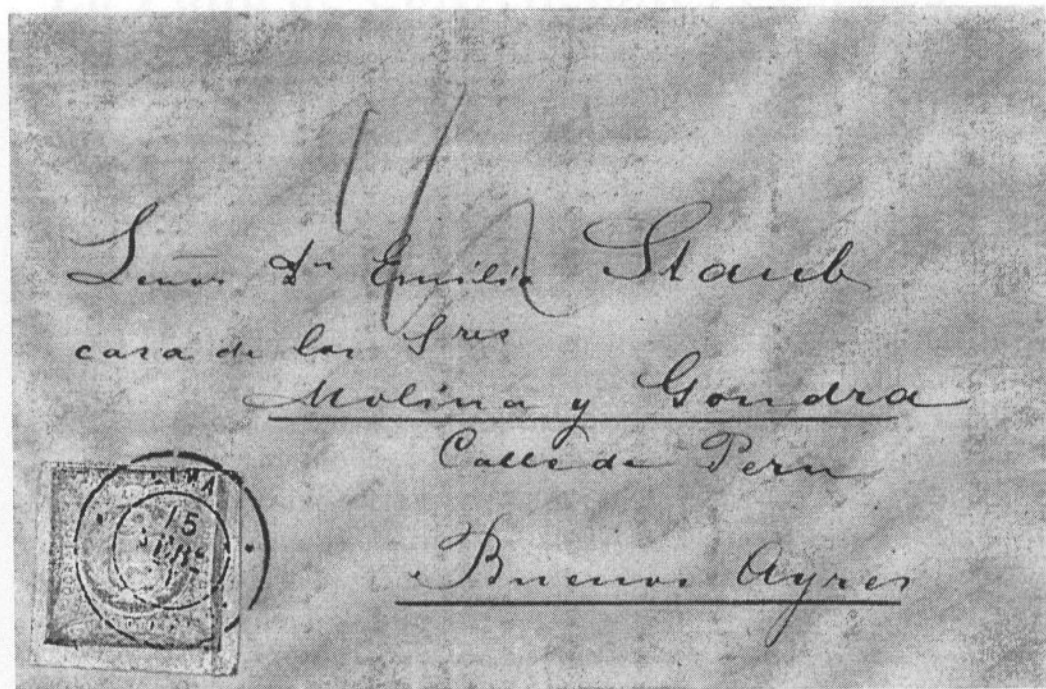 1/2
Señor Dn Emilio Staub
casa de los Sres
Molina y Gondra
Calle de Peru
Buenos Ayres
LIMA
15